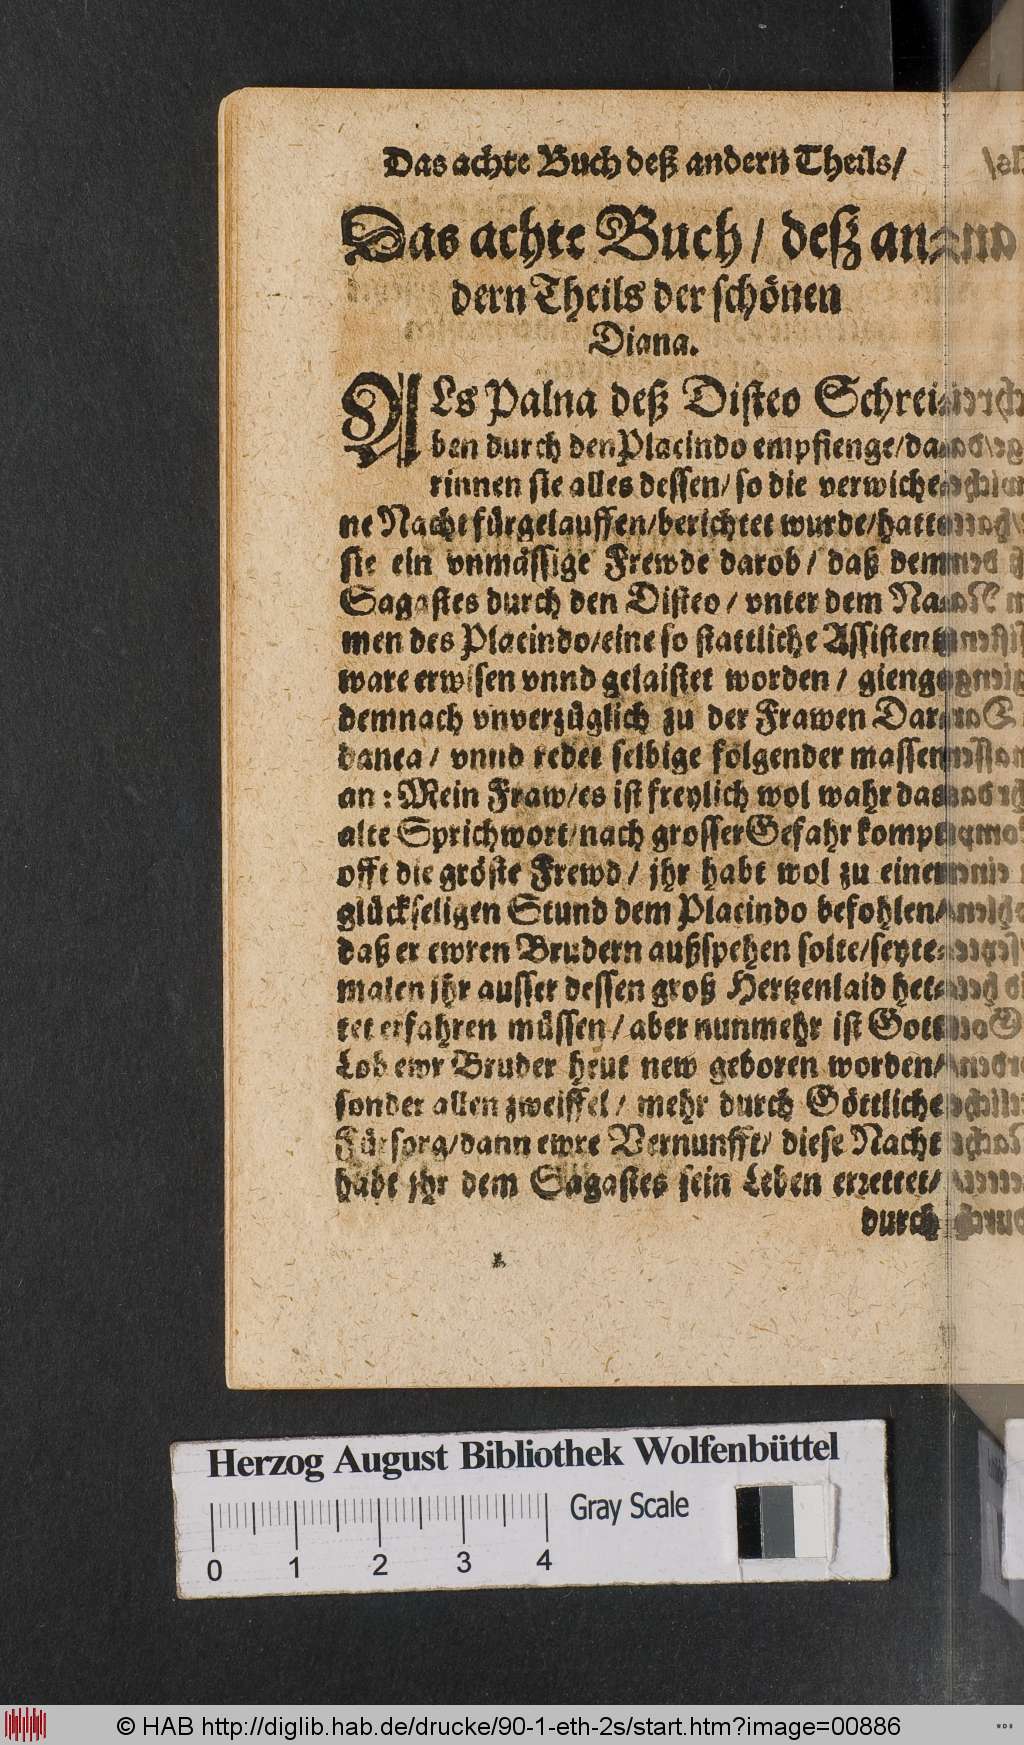 Das achte Buch deß andern Theils/
Das achte Buch / deß an⸗
dern Theils der schönen
Diana.
ALs Palna deß Disteo Schrei⸗
ben durch den Placindo empfienge/da⸗
rinnen sie alles dessen/ so die verwiche⸗
ne Nacht fürgelauffen/berichtet wurde/hatte
sie ein vnmässige Frewde darob / daß dem
Sagastes durch den Disteo / vnter dem Na⸗
men des Placindo/eine so stattliche Assistentz
ware erwisen vnnd gelaistet worden / gieng
demnach vnverzüglich zu der Frawen Dar⸗
danea / vnnd redet selbige folgender massen
an : Mein Fraw/es ist freylich wol wahr das
alte Sprichwort/nach grosser Gefahr kompt
offt die gröste Frewd / jhr habt wol zu einer
glückseligen Stund dem Placindo befohlen/
daß er ewren Brudern außspehen solte/seyte⸗
malen jhr ausser dessen groß Hertzenlaid het⸗
tet erfahren müssen / aber nunmehr ist Gott
Lob ewr Bruder heut new geboren worden/
sonder allen zweiffel / mehr durch Göttliche
Fürsorg/dann ewre Vernunfft/ diese Nacht
habt jhr dem Sagastes sein Leben errettet/
durch
Herzog August Bibliothek Wolfenbüttel
Gray Scale
0 1 2 3 4
© HAB http://diglib.hab.de/drucke/90-1-eth-2s/start.htm?image=00886